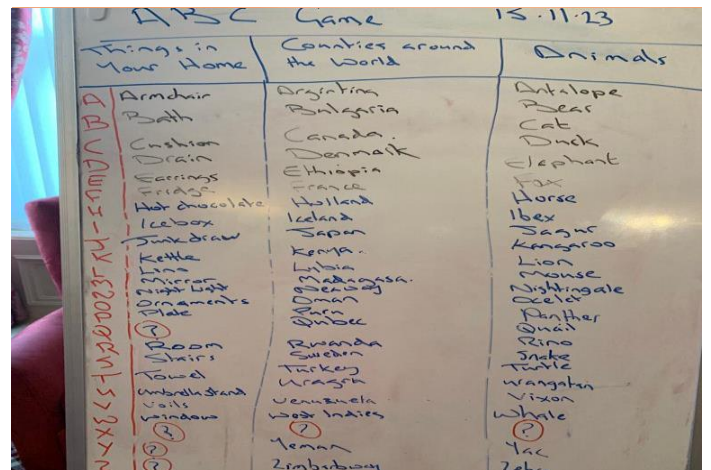 ABC Game 15.11.23
Things in Your Home Counties around the World Animals
A Armchair Argintina Antalope
B Bath Bulgaria Bear
C Cushion Canada. Cat
D Drain Denmark Duck
E Earrings Ethiopia Elephant
F Fridge France Fox
Hot chocolate Holland Horse
I Icebox Iceland Ibex
J Junk draw Japan Jagur
K Kettle Kenya. Kangaroo
L Lino Lybia Lion
M Mirror Madagasa. Mouse
N Nightingale
O Ornaments Oman Ocelot
P Plate Peru Panther
Q ? Quibec Quail
R Room Rwanda Rino
S Stairs Sweden Snake
T Towel Turkey Turtle
U umbrella strand urangatan
V Voils Venuzuela Vixon
W window West Indies Whale
X ? ? ?
Y ? Yeman Yac
Z ? Zimbabway